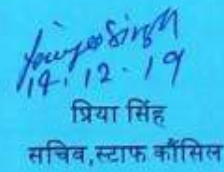 14.12.19
प्रिया सिंह
सचिव,स्टाफ कौंसिल